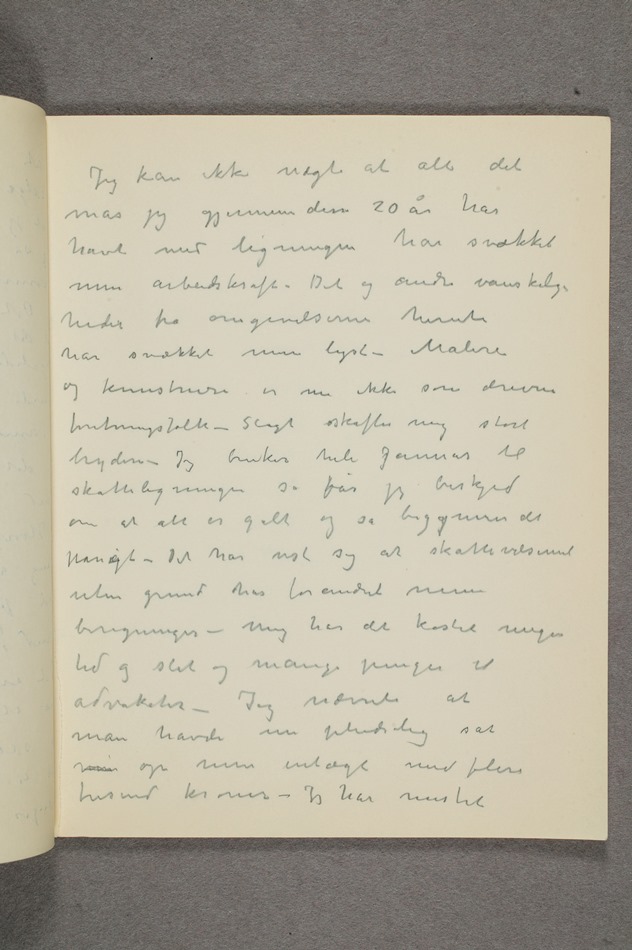 Jeg kan ikke nægte at alt det
mas jeg gjennem disse 20 år har
havt med ligningen har svækket
min arbeidskraft – Det og andre vanskelig-
heder fra omgivelserne herute
har svækket min lyst – Malere
og kunstnere er nu ikke som drevne
forretningsfolk – Sligt skaffer mig stort
bryderi – Jeg bruker hele Januar til
skatteligningen så får jeg beskjed
om at alt er galt og så begynner det
påny igt – Det har vist sig at skattevæsenet
uten grund har forandret mine
beregninger – Mig har det kostet meget
tid og slit og mange penger til
advokater – Jeg nævnte at
man havde nu pludselig sat
op min indtægt med flere
tusend kroner – Jeg har mistet